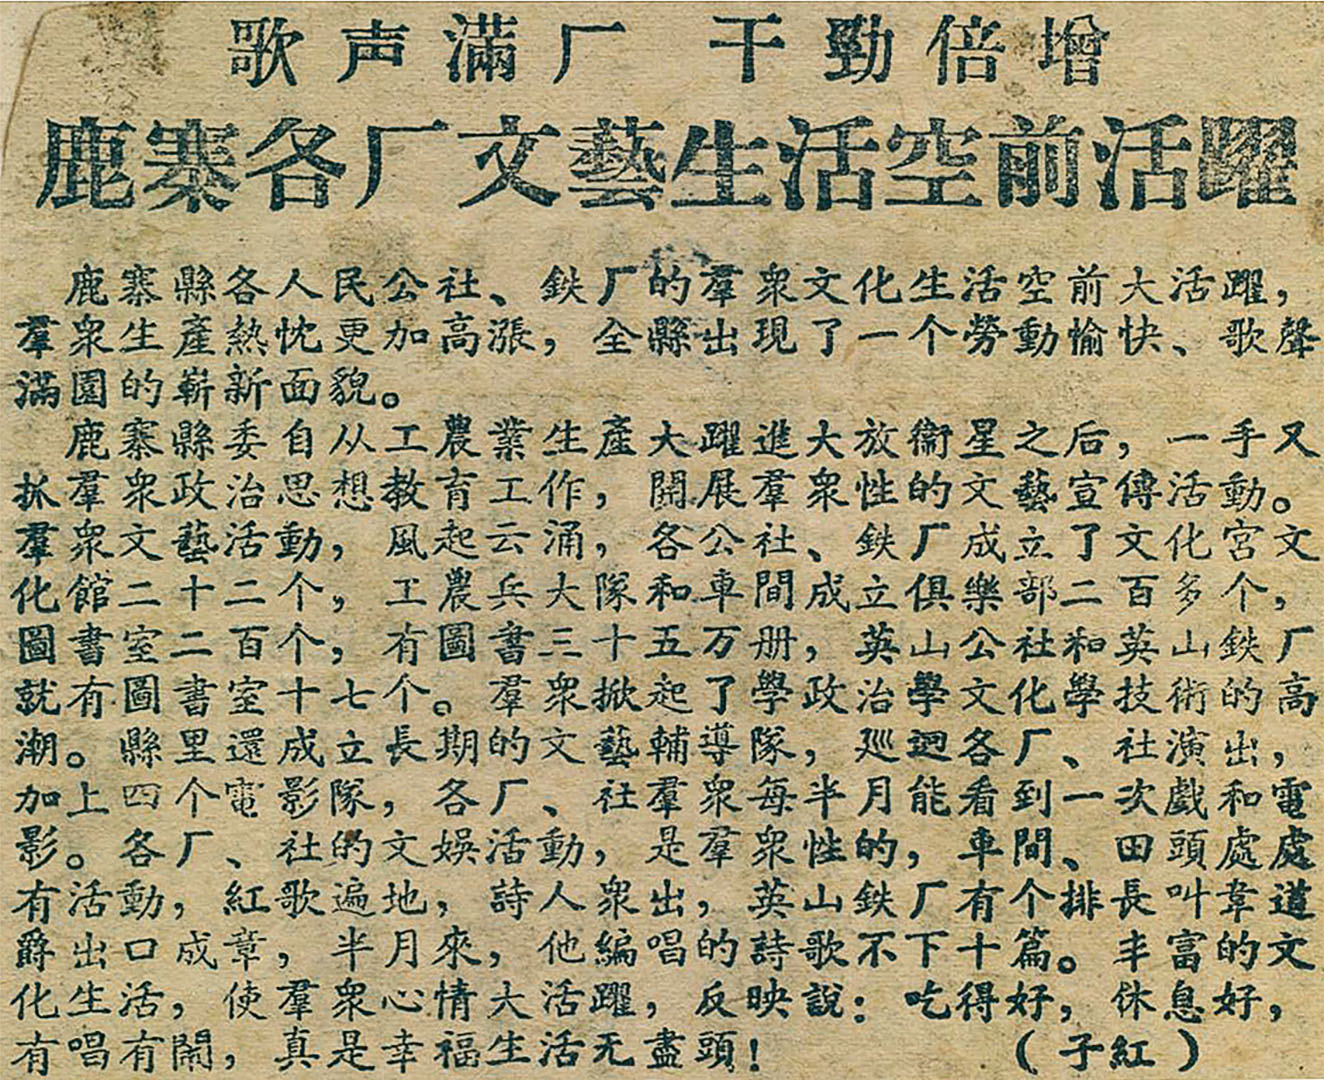 歌声滿厂 干勁倍增
鹿寨各厂文藝生活空前活躍
鹿寨縣各人民公社、鉄厂的羣衆文化生活空前大活躍，
羣衆生產熱忱更加高漲，全縣出現了一个勞動愉快、歌聲
滿園的嶄新面貌。
鹿寨縣委自从工農業生產大躍進大放衞星之后，一手又
抓羣衆政治思想教育工作，開展羣衆性的文藝宣傳活動。
羣衆文藝活動，風起云涌，各公社、鉄厂成立了文化宮文
化館二十二个，工農兵大隊和車間成立俱樂部二百多个，
圖書室二百个，有圖書三十五万册，英山公社和英山鉄厂
就有圖書室十七个。羣衆掀起了學政治學文化學技術的高
潮。縣里還成立長期的文藝輔導隊，廵迴各厂、社演出，
加上四个電影隊，各厂、社羣衆每半月能看到一次戲和電
影。各厂、社的文娛活動，是羣衆性的，車間、田頭處處
有活動，紅歌遍地，詩人衆出，英山鉄厂有个排長叫韋道
爵出口成章，半月來，他編唱的詩歌不下十篇。丰富的文
化生活，使羣衆心情大活躍，反映說：吃得好，休息好，
有唱有鬧，真是幸福生活无盡頭！（子紅）